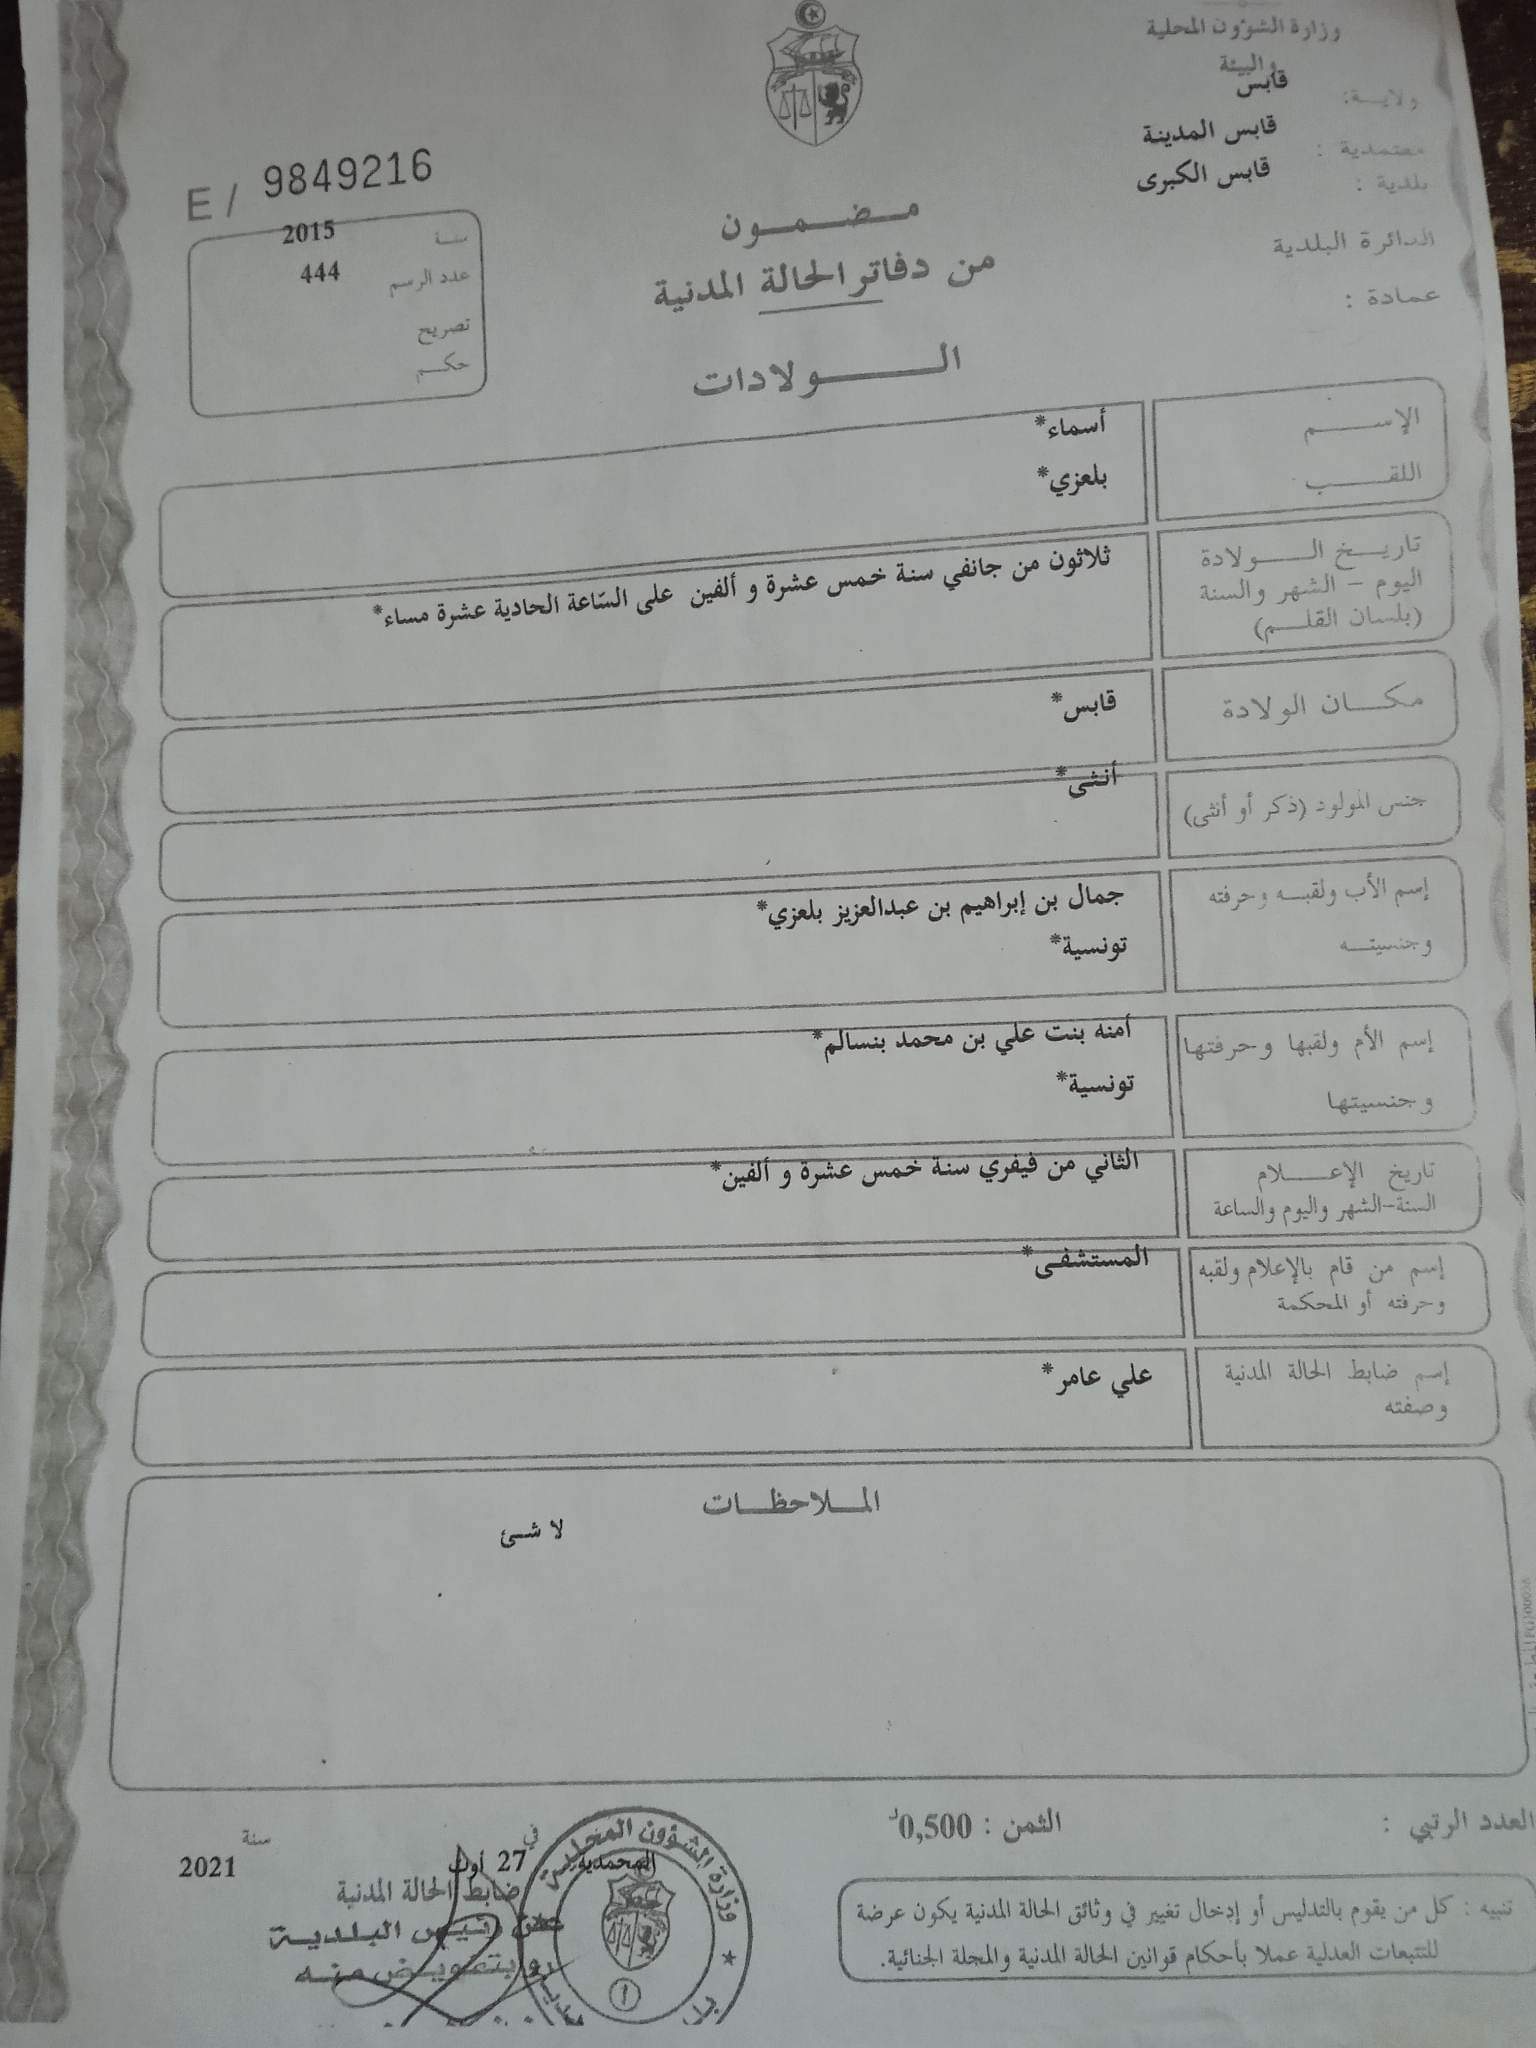 وزارة الشؤون المحلية
والبيئة
ولاية: قابس
معتمدية : قابس المدينة
بلدية : قابس الكبرى
الدائرة البلدية
عمادة :
E / 9849216
سنة 2015
عدد الرسم 444
تصريح
حكم
مضمون
من دفاتر الحالة المدنية
الولادات
الإسم أسماء*
اللقب بلعزي*
تاريخ الولادة
اليوم – الشهر والسنة
(بلسان القلم)
ثلاثون من جانفي سنة خمس عشرة و ألفين على السّاعة الحادية عشرة مساء*
مكان الولادة قابس*
جنس المولود (ذكر أو أنثى) أنثى*
إسم الأب ولقبه وحرفته جمال بن إبراهيم بن عبدالعزيز بلعزي*
وجنسيته تونسية*
إسم الأم ولقبها وحرفتها أمنه بنت علي بن محمد بنسالم*
وجنسيتها تونسية*
تاريخ الإعلام الثاني من فيفري سنة خمس عشرة و ألفين*
السنة-الشهر واليوم والساعة
إسم من قام بالإعلام ولقبه المستشفى*
وحرفته أو المحكمة
إسم ضابط الحالة المدنية علي عامر*
وصفته
الملاحظات
لا شئ
العدد الرتبي :
الثمن : 0,500د
تنبيه : كل من يقوم بالتدليس أو إدخال تغيير في وثائق الحالة المدنية يكون عرضة
للتتبعات العدلية عملا بأحكام قوانين الحالة المدنية والمجلة الجنائية.
المحمدية في 27 أوت سنة 2021
ضابط الحالة المدنية
عن رئيس البلدية
وبتفويض منه
وزارة الشؤون المحلية